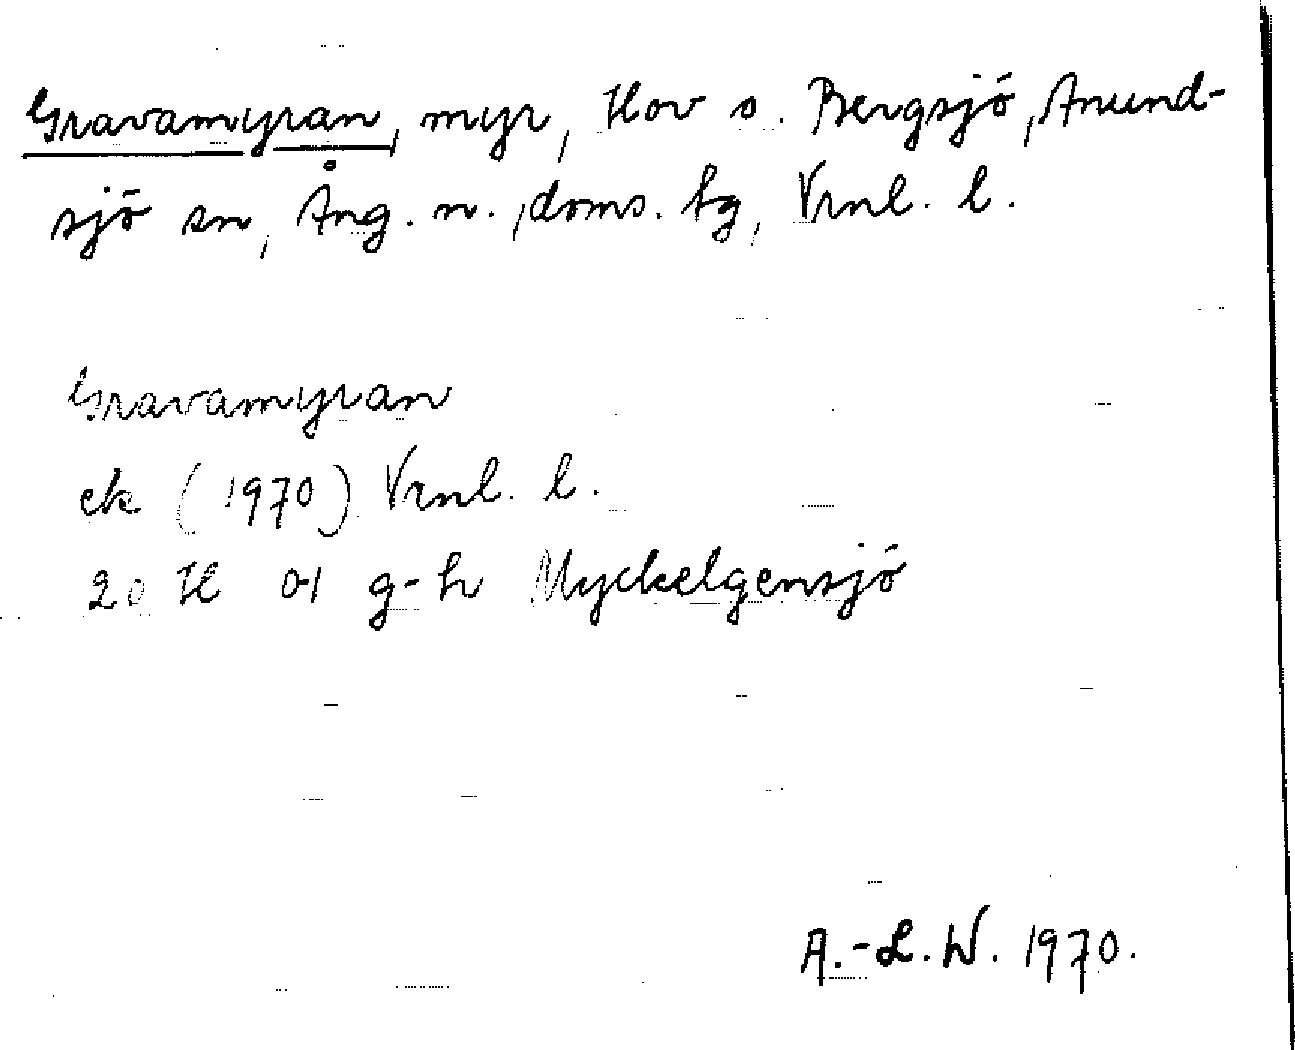 Gravamyran, myr, Hov o. Bergsjö, Anund-
sjö sn, Ång. n., doms. tg, Vrnl. l.
Gravamyran
ek (1970) Vrnl. l.
20 H 01 g-h Myckelgensjö
A.-L.W. 1970.